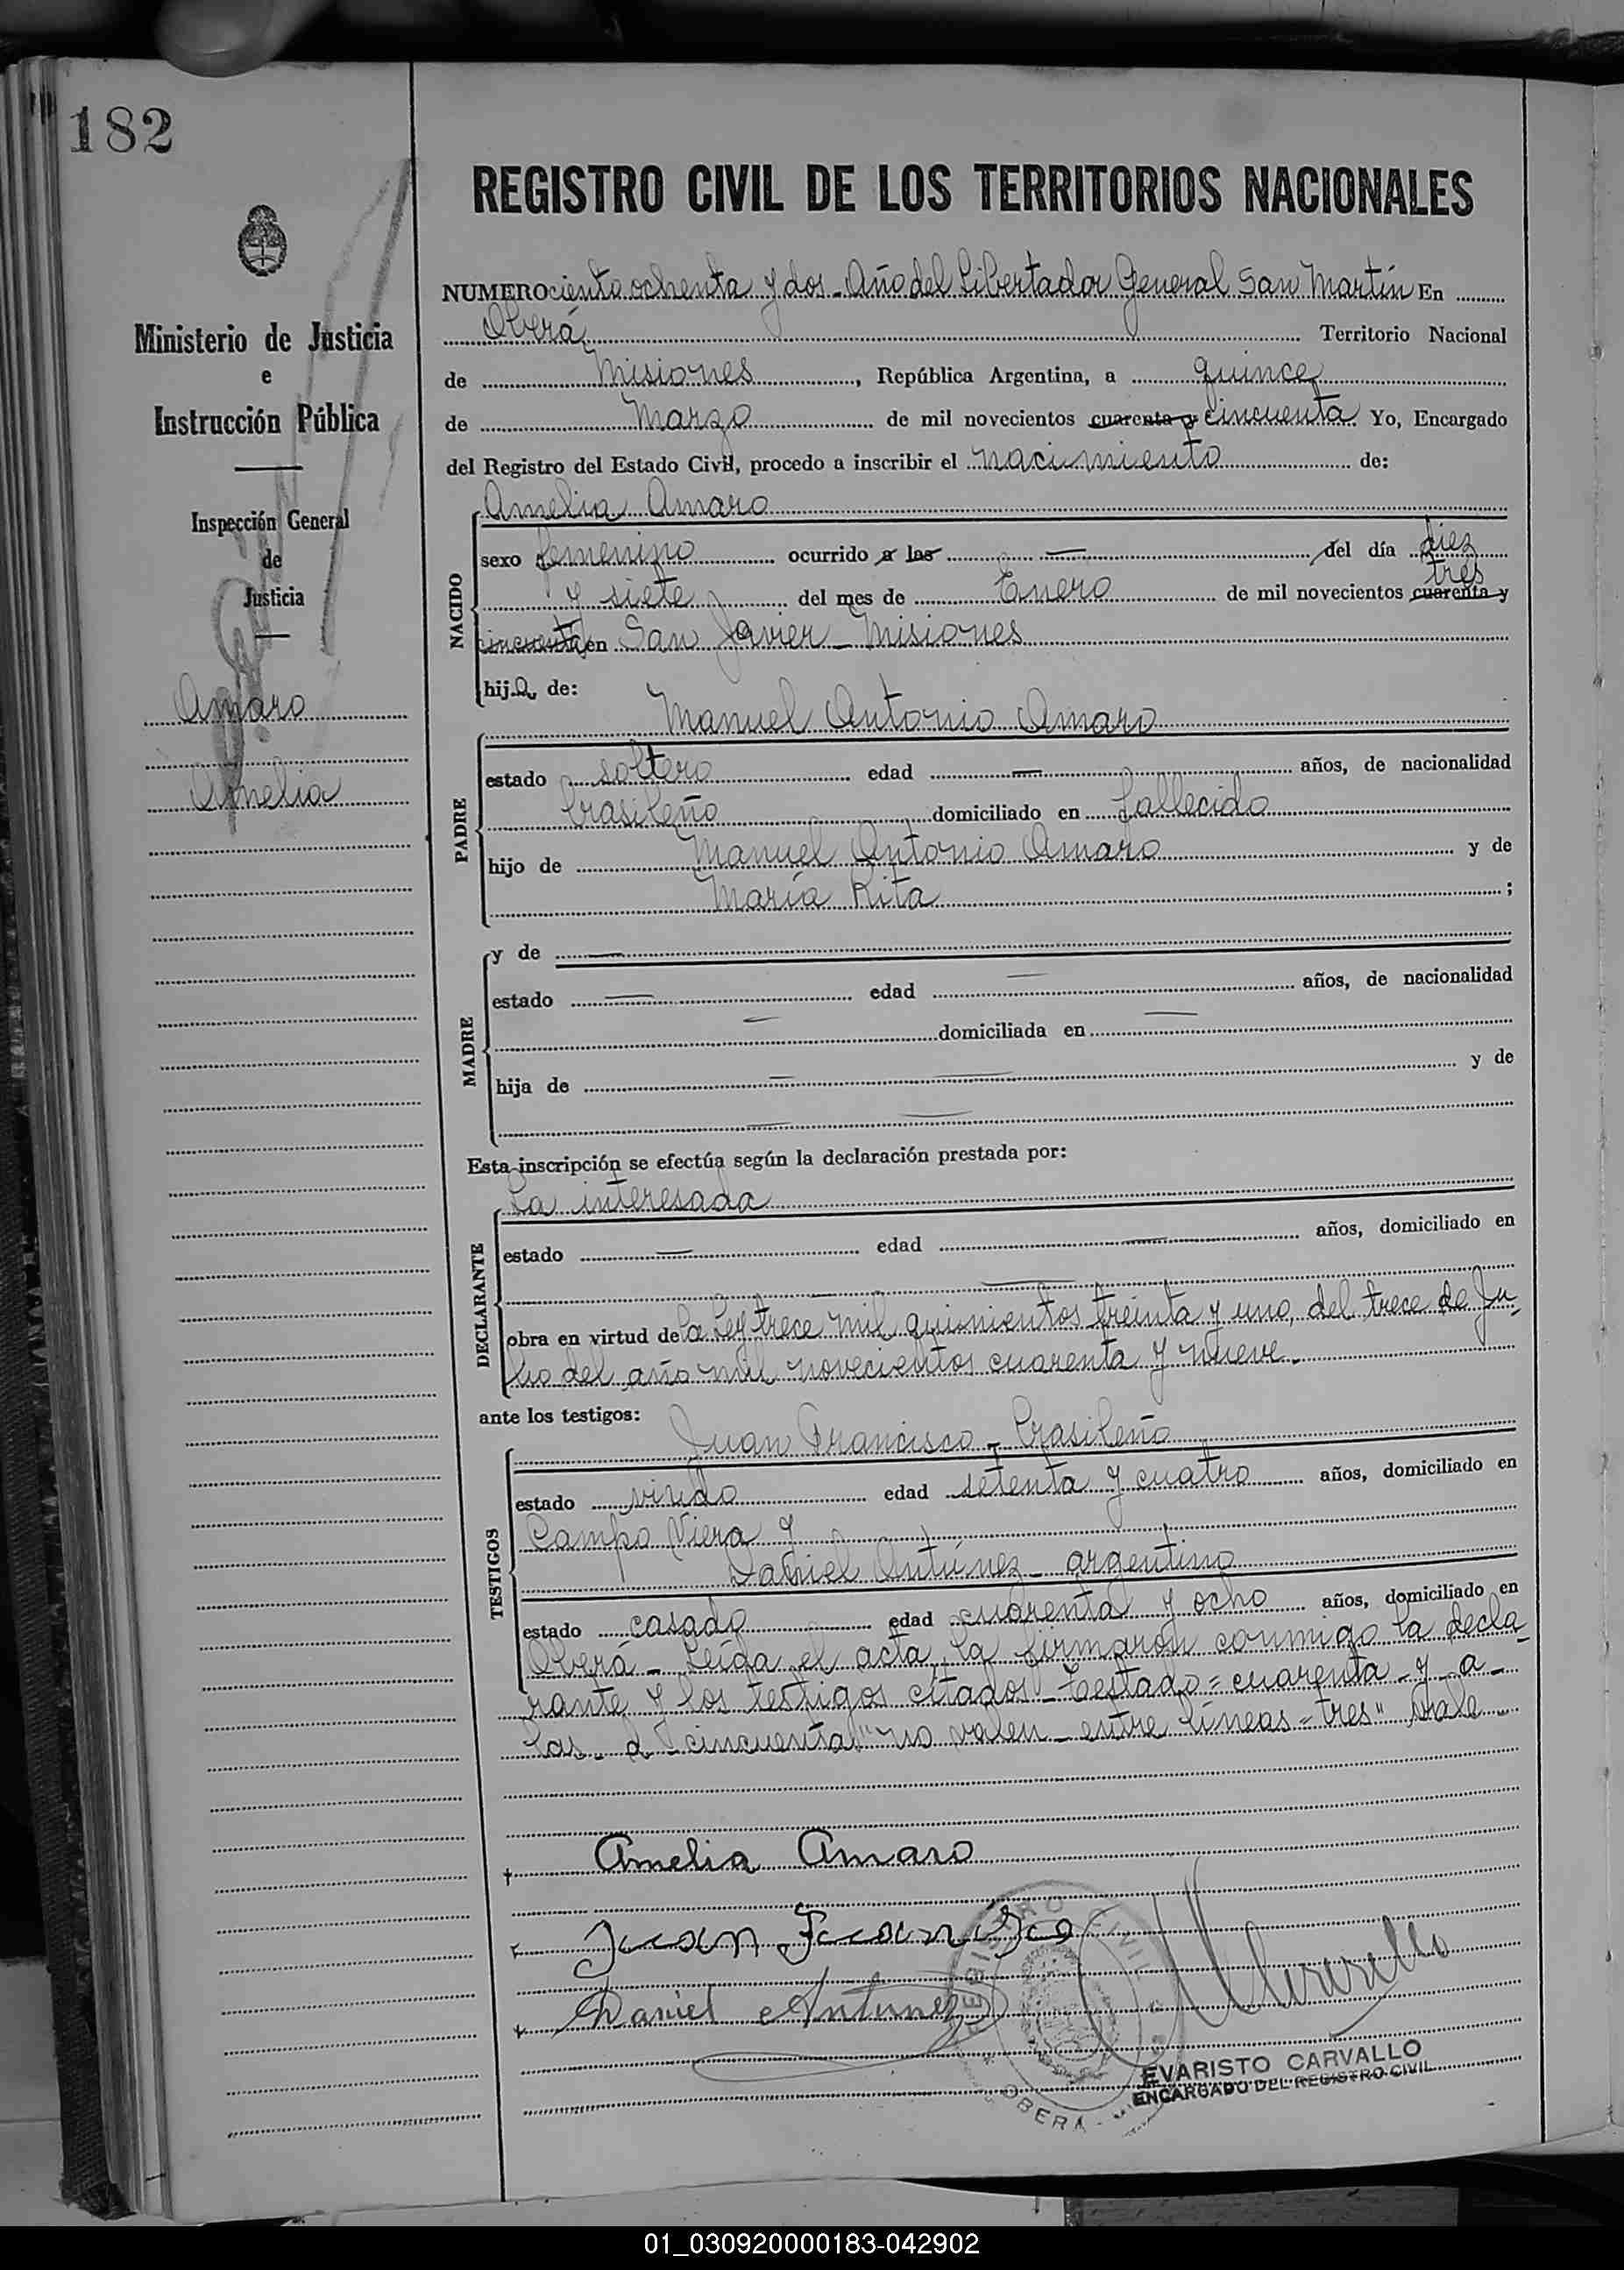 182
REGISTRO CIVIL DE LOS TERRITORIOS NACIONALES
Ministerio de Justicia
e
Instrucción Pública
Inspección General
de
Justicia
Amaro
Amelia
NUMERO ciento ochenta y dos - Año del Libertador General San Martín En
Oberá Territorio Nacional
de Misiones, República Argentina, a quince
de Marzo de mil novecientos cuarenta y cincuenta Yo, Encargado
del Registro del Estado Civil, procedo a inscribir el nacimiento de:
NACIDO
Amelia Amaro
sexo femenino ocurrido a las — del día diez
y siete del mes de Enero de mil novecientos cuarenta y tres
cincuenta en San Javier - Misiones
hija de:
PADRE
Manuel Antonio Amaro
estado soltero edad — años, de nacionalidad
brasileño domiciliado en fallecido
hijo de Manuel Antonio Amaro y de
María Rita ;
MADRE
y de —
estado — edad — años, de nacionalidad
— domiciliada en —
hija de — y de
—
Esta inscripción se efectúa según la declaración prestada por:
DECLARANTE
La interesada
estado — edad — años, domiciliado en
—
obra en virtud de la Ley trece mil quinientos treinta y uno, del trece de Ju-
lio del año mil novecientos cuarenta y nueve.
ante los testigos:
TESTIGOS
Juan Francisco - brasileño
estado viudo edad setenta y cuatro años, domiciliado en
Campo Viera y
Daniel Antúnez - argentino
estado casado edad cuarenta y ocho años, domiciliado en
Oberá - Leída el acta, la firmaron conmigo la decla-
rante y los testigos citados - Testado = cuarenta - y - a -
las - d - cincuenta" no valen - entre líneas = tres" Vale -
Amelia Amaro
Juan Francisco
Daniel Antunez
REGISTRO CIVIL
OBERA
EVARISTO CARVALLO
ENCARGADO DEL REGISTRO CIVIL
01_030920000183-042902